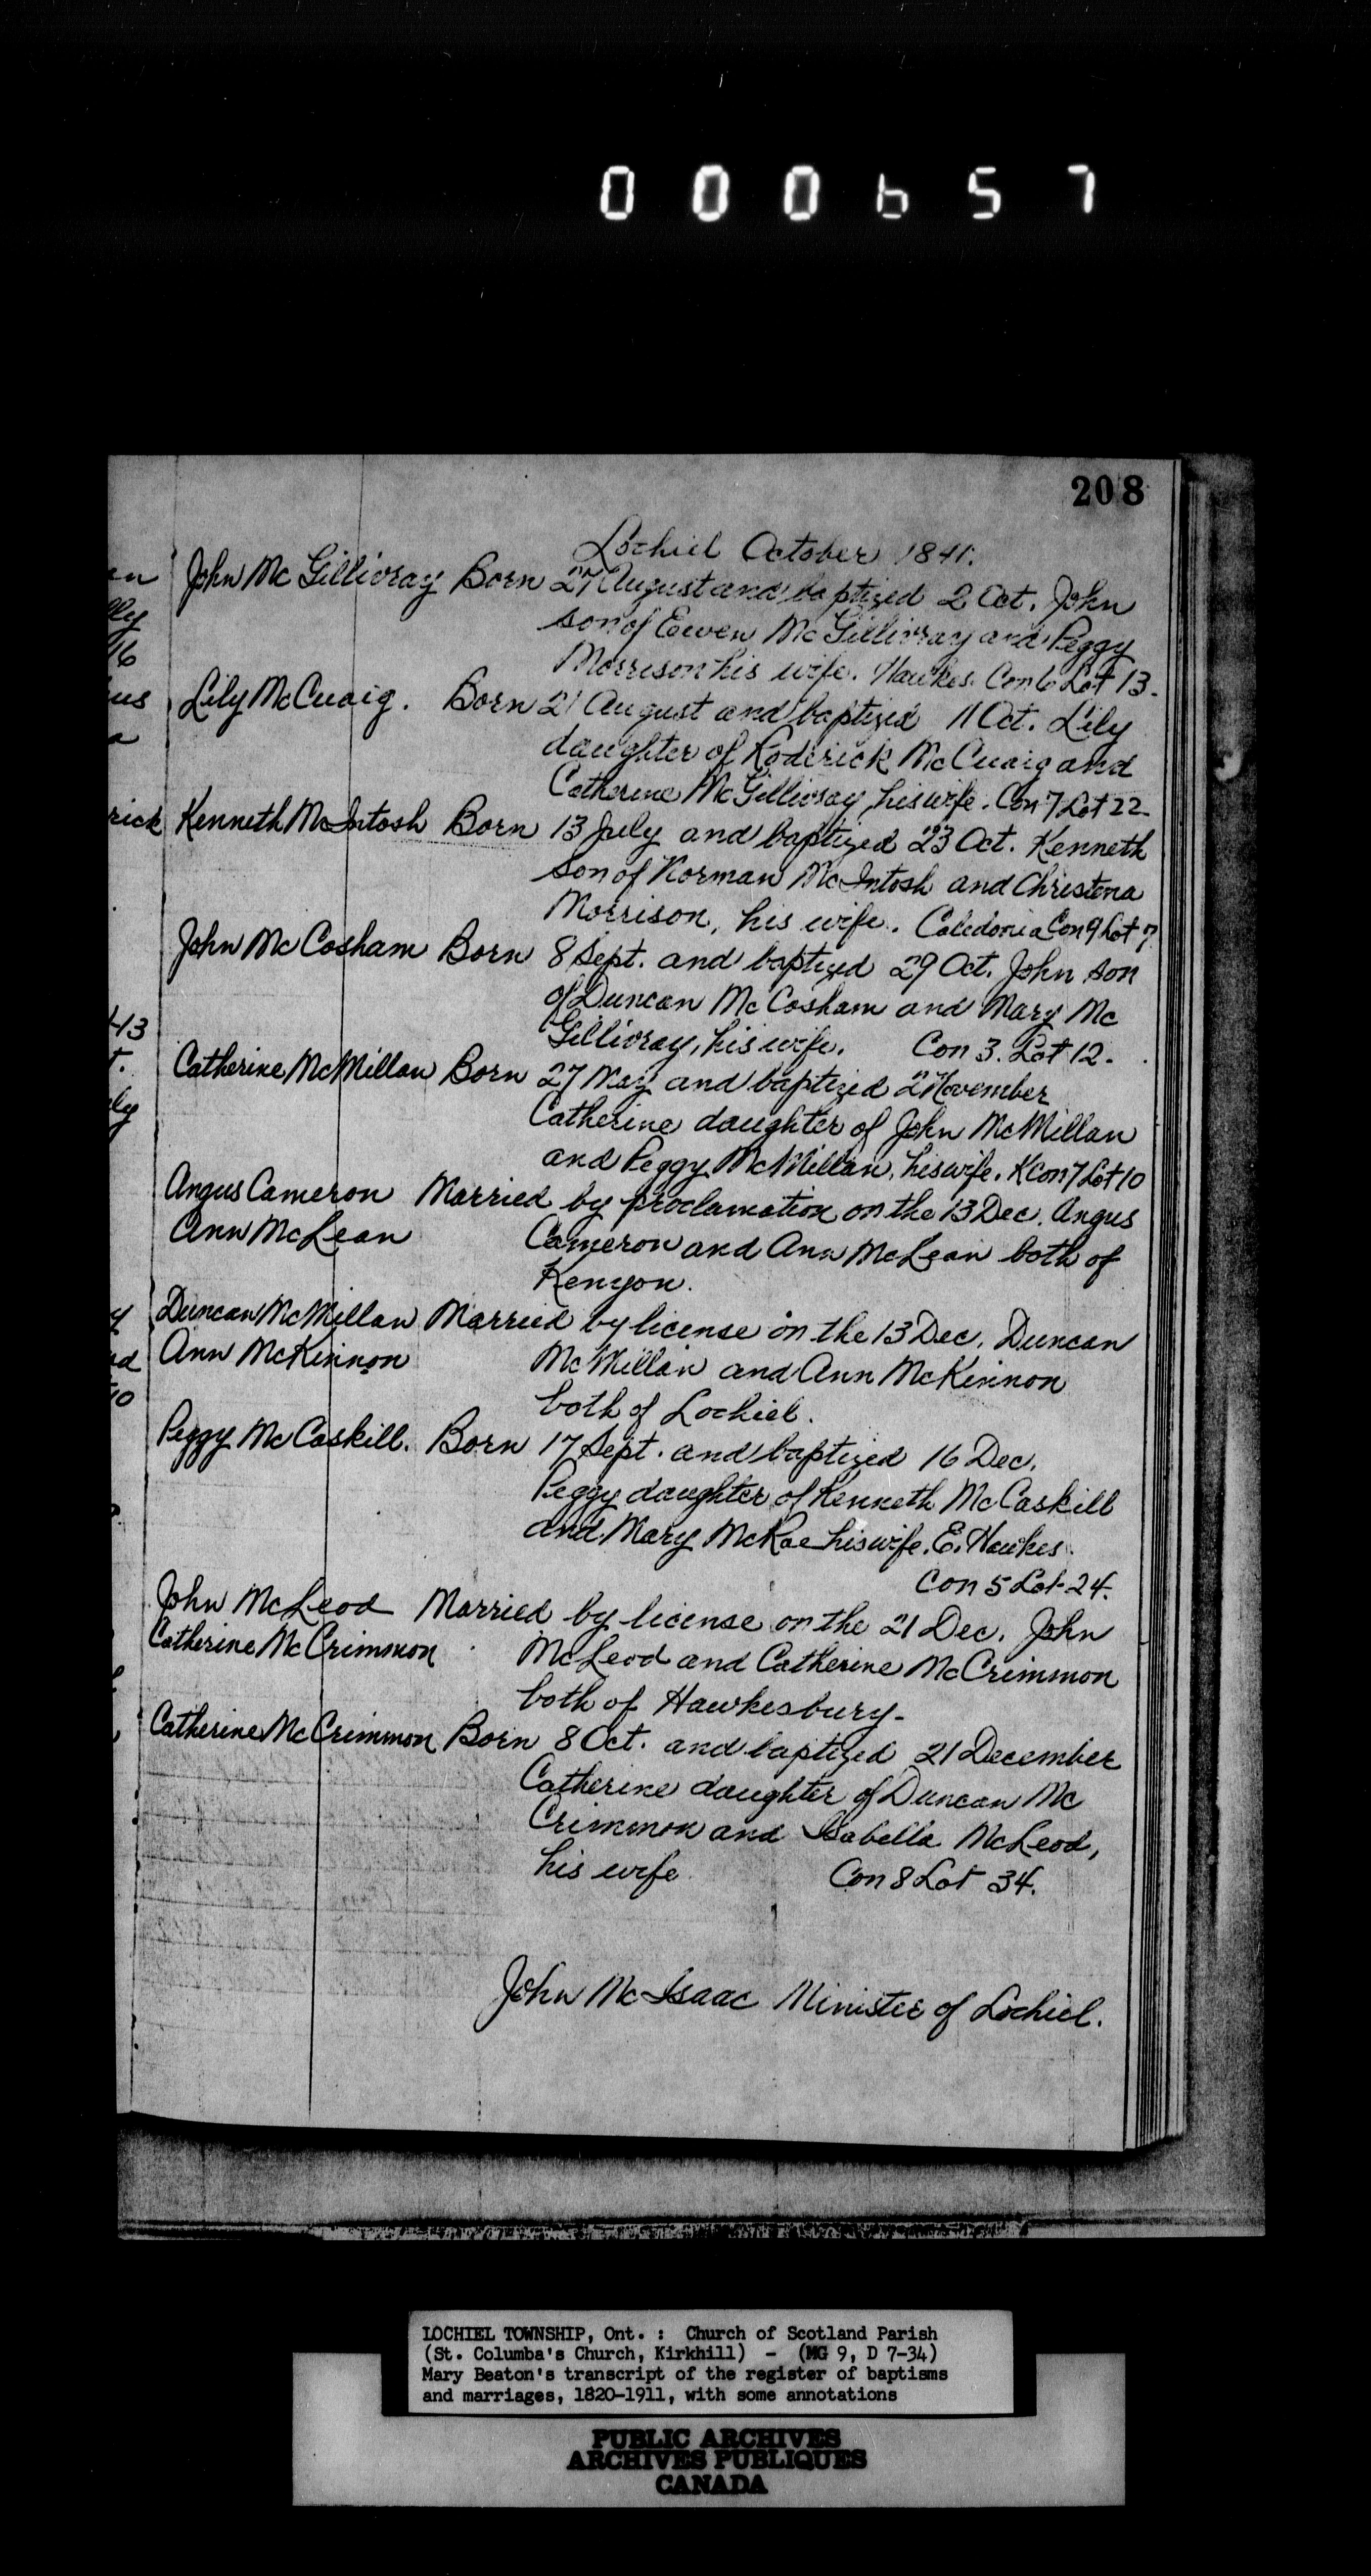 000657
208
Lochiel October 1841.
John McGillivray Born 27 August and baptized 2 Oct. John
son of Ewen McGillivray and Peggy
Morrison his wife. Hawkes. Con 6 Lot 13.
Lily McCuaig. Born 21 August and baptized 11 Oct. Lily
daughter of Roderick McCuaig and
Catherine McGillivray, his wife. Con 7 Lot 22.
Kenneth McIntosh Born 13 July and baptized 23 Oct. Kenneth
son of Norman McIntosh and Christena
Morrison, his wife. Caledonia Con 9 Lot 7.
John McCosham Born 8 Sept. and baptized 29 Oct. John son
of Duncan McCosham and Mary Mc
Gillivray, his wife. Con 3. Lot 12.
Catherine McMillan Born 27 May and baptized 2 November
Catherine daughter of John McMillan
and Peggy McMillan, his wife. K Con 7 Lot 10
Angus Cameron Married by proclamation on the 13 Dec. Angus
Ann McLean Cameron and Ann McLean both of
Kenyon.
Duncan McMillan Married by license on the 13 Dec. Duncan
Ann McKinnon McMillan and Ann McKinnon
both of Lochiel.
Peggy McCaskill. Born 17 Sept. and baptized 16 Dec.
Peggy daughter of Kenneth McCaskill
and Mary McRae his wife. E. Hawkes.
Con 5 Lot 24.
John McLeod Married by license on the 21 Dec. John
Catherine McCrimmon McLeod and Catherine McCrimmon
both of Hawkesbury.
Catherine McCrimmon Born 8 Oct. and baptized 21 December
Catherine daughter of Duncan Mc
Crimmon and Isabella McLeod,
his wife Con 8 Lot 34.
John McIsaac Minister of Lochiel.
LOCHIEL TOWNSHIP, Ont. : Church of Scotland Parish
(St. Columba's Church, Kirkhill) - (MG 9, D 7-34)
Mary Beaton's transcript of the register of baptisms
and marriages, 1820-1911, with some annotations
PUBLIC ARCHIVES
ARCHIVES PUBLIQUES
CANADA